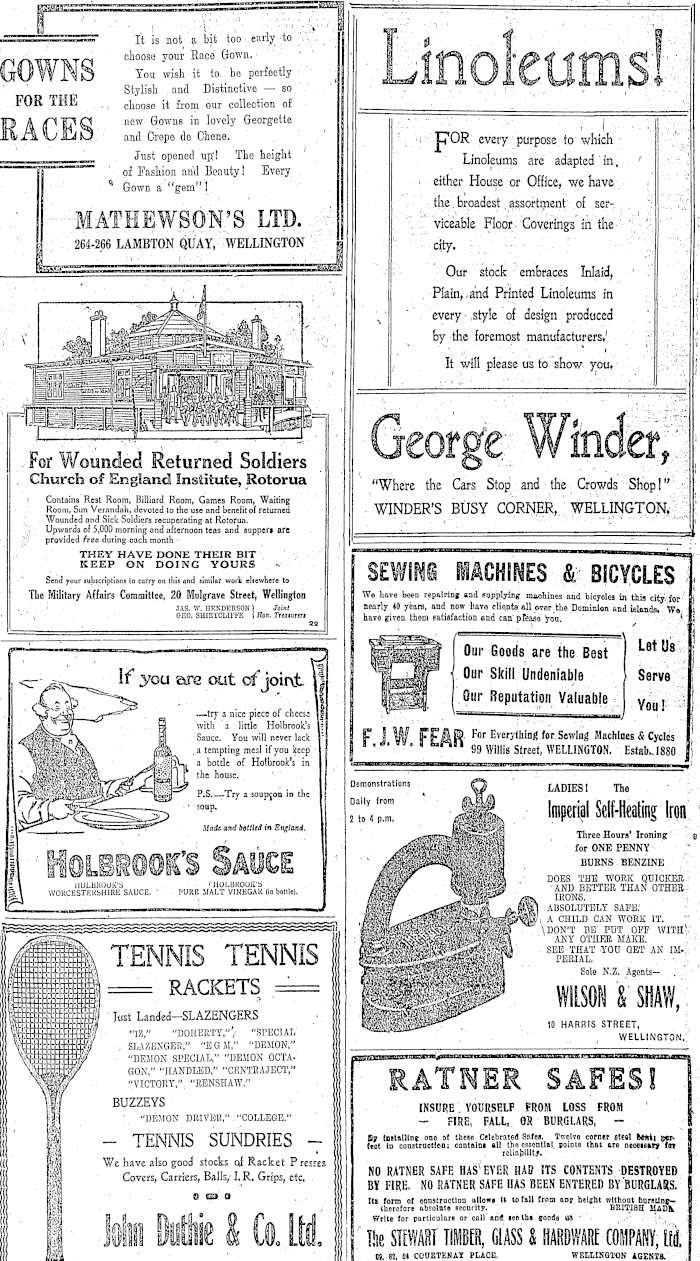 GOWNS
FOR THE
RACES
It is not a bit too early to
choose your Race Gown.
You wish it to be perfectly
Stylish and Distinctive — so
choose it from our collection of
new Gowns in lovely Georgette
and Crepe de Chene.
Just opened up! The height
of Fashion and Beauty! Every
Gown a "gem"!
MATHEWSON'S LTD.
264-266 LAMBTON QUAY, WELLINGTON
For Wounded Returned Soldiers
Church of England Institute, Rotorua
Contains Rest Room, Billiard Room, Games Room, Waiting
Room, Sun Verandah, devoted to the use and benefit of returned
Wounded and Sick Soldiers recuperating at Rotorua.
Upwards of 5,000 morning and afternoon teas and suppers are
provided free during each month
THEY HAVE DONE THEIR BIT
KEEP ON DOING YOURS
Send your subscriptions to carry on this and similar work elsewhere to
The Military Affairs Committee, 20 Mulgrave Street, Wellington
JAS. W. HENDERSON } Joint
GEO. SHIRTCLIFFE } Hon. Treasurers
22
If you are out of joint
—try a nice piece of cheese
with a little Holbrook's
Sauce. You will never lack
a tempting meal if you keep
a bottle of Holbrook's in
the house.
P.S.—Try a soupçon in the
soup.
Made and bottled in England.
HOLBROOK'S SAUCE
HOLBROOK'S
WORCESTERSHIRE SAUCE.
HOLBROOK'S
PURE MALT VINEGAR (in bottle).
TENNIS TENNIS
RACKETS
Just Landed—SLAZENGERS
"IZ," "DOHERTY," "SPECIAL
SLAZENGER," "E G M," "DEMON,"
"DEMON SPECIAL," "DEMON OCTA-
GON," "HANDLED," "CENTRAJECT,"
"VICTORY," "RENSHAW."
BUZZEYS
"DEMON DRIVER," "COLLEGE."
— TENNIS SUNDRIES —
We have also good stocks of Racket Presses
Covers, Carriers, Balls, I.R. Grips, etc.
John Duthie & Co. Ltd.
Linoleums!
FOR every purpose to which
Linoleums are adapted in
either House or Office, we have
the broadest assortment of ser-
viceable Floor Coverings in the
city.
Our stock embraces Inlaid,
Plain, and Printed Linoleums in
every style of design produced
by the foremost manufacturers.
It will please us to show you.
George Winder,
"Where the Cars Stop and the Crowds Shop!"
WINDER'S BUSY CORNER, WELLINGTON.
SEWING MACHINES & BICYCLES
We have been repairing and supplying machines and bicycles in this city for
nearly 40 years, and now have clients all over the Dominion and islands. We
have given them satisfaction and can please you.
Our Goods are the Best
Our Skill Undeniable
Our Reputation Valuable
Let Us
Serve
You!
F. J. W. FEAR
For Everything for Sewing Machines & Cycles
99 Willis Street, WELLINGTON. Estab. 1880
Demonstrations
Daily from
2 to 4 p.m.
LADIES! The
Imperial Self-Heating Iron
Three Hours' Ironing
for ONE PENNY
BURNS BENZINE
DOES THE WORK QUICKER
AND BETTER THAN OTHER
IRONS.
ABSOLUTELY SAFE.
A CHILD CAN WORK IT.
DON'T BE PUT OFF WITH
ANY OTHER MAKE.
SEE THAT YOU GET AN IM-
PERIAL.
Sole N.Z. Agents—
WILSON & SHAW,
10 HARRIS STREET,
WELLINGTON.
RATNER SAFES!
INSURE YOURSELF FROM LOSS FROM
— FIRE, FALL, OR BURGLARS, —
By installing one of these Celebrated Safes. Twelve corner steel bent; per-
fect in construction; contains all the essential points that are necessary for
reliability.
NO RATNER SAFE HAS EVER HAD ITS CONTENTS DESTROYED
BY FIRE. NO RATNER SAFE HAS BEEN ENTERED BY BURGLARS.
Its form of construction allows it to fall from any height without bursting—
therefore absolute security. BRITISH MADE
Write for particulars or call and see the goods
The STEWART TIMBER, GLASS & HARDWARE COMPANY, Ltd.
COURTENAY PLACE. WELLINGTON AGENTS.